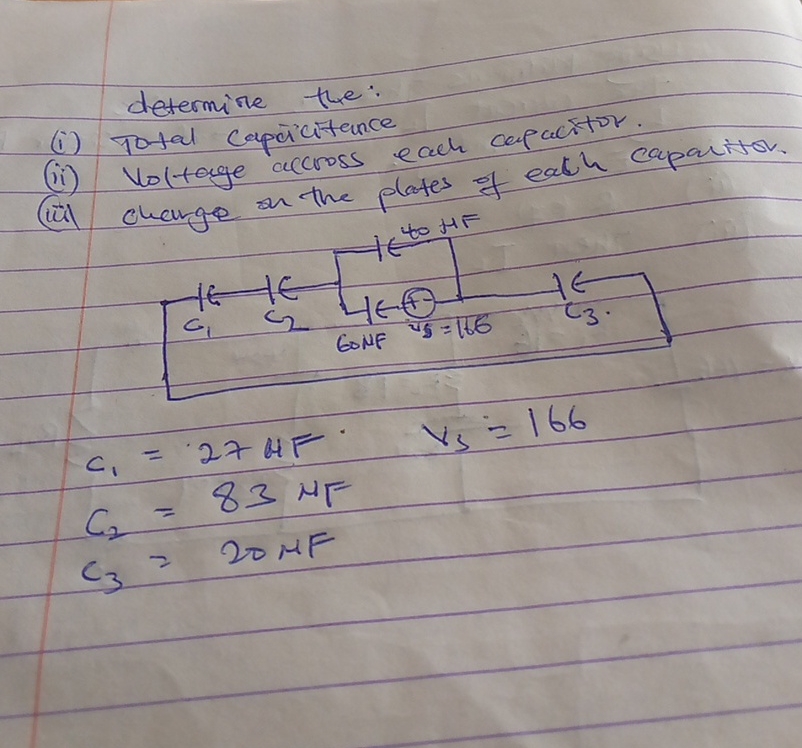 determine the:
(i) Total Capaicitence
(ii) Voltage accross each capacitor.
(iii) charge on the plates of each capacitor.
40 μF
C₁ C₂ C₃.
60μF vs = 166
C₁ = 27 μF. Vs = 166
C₂ = 83 μF
C₃ = 20 μF